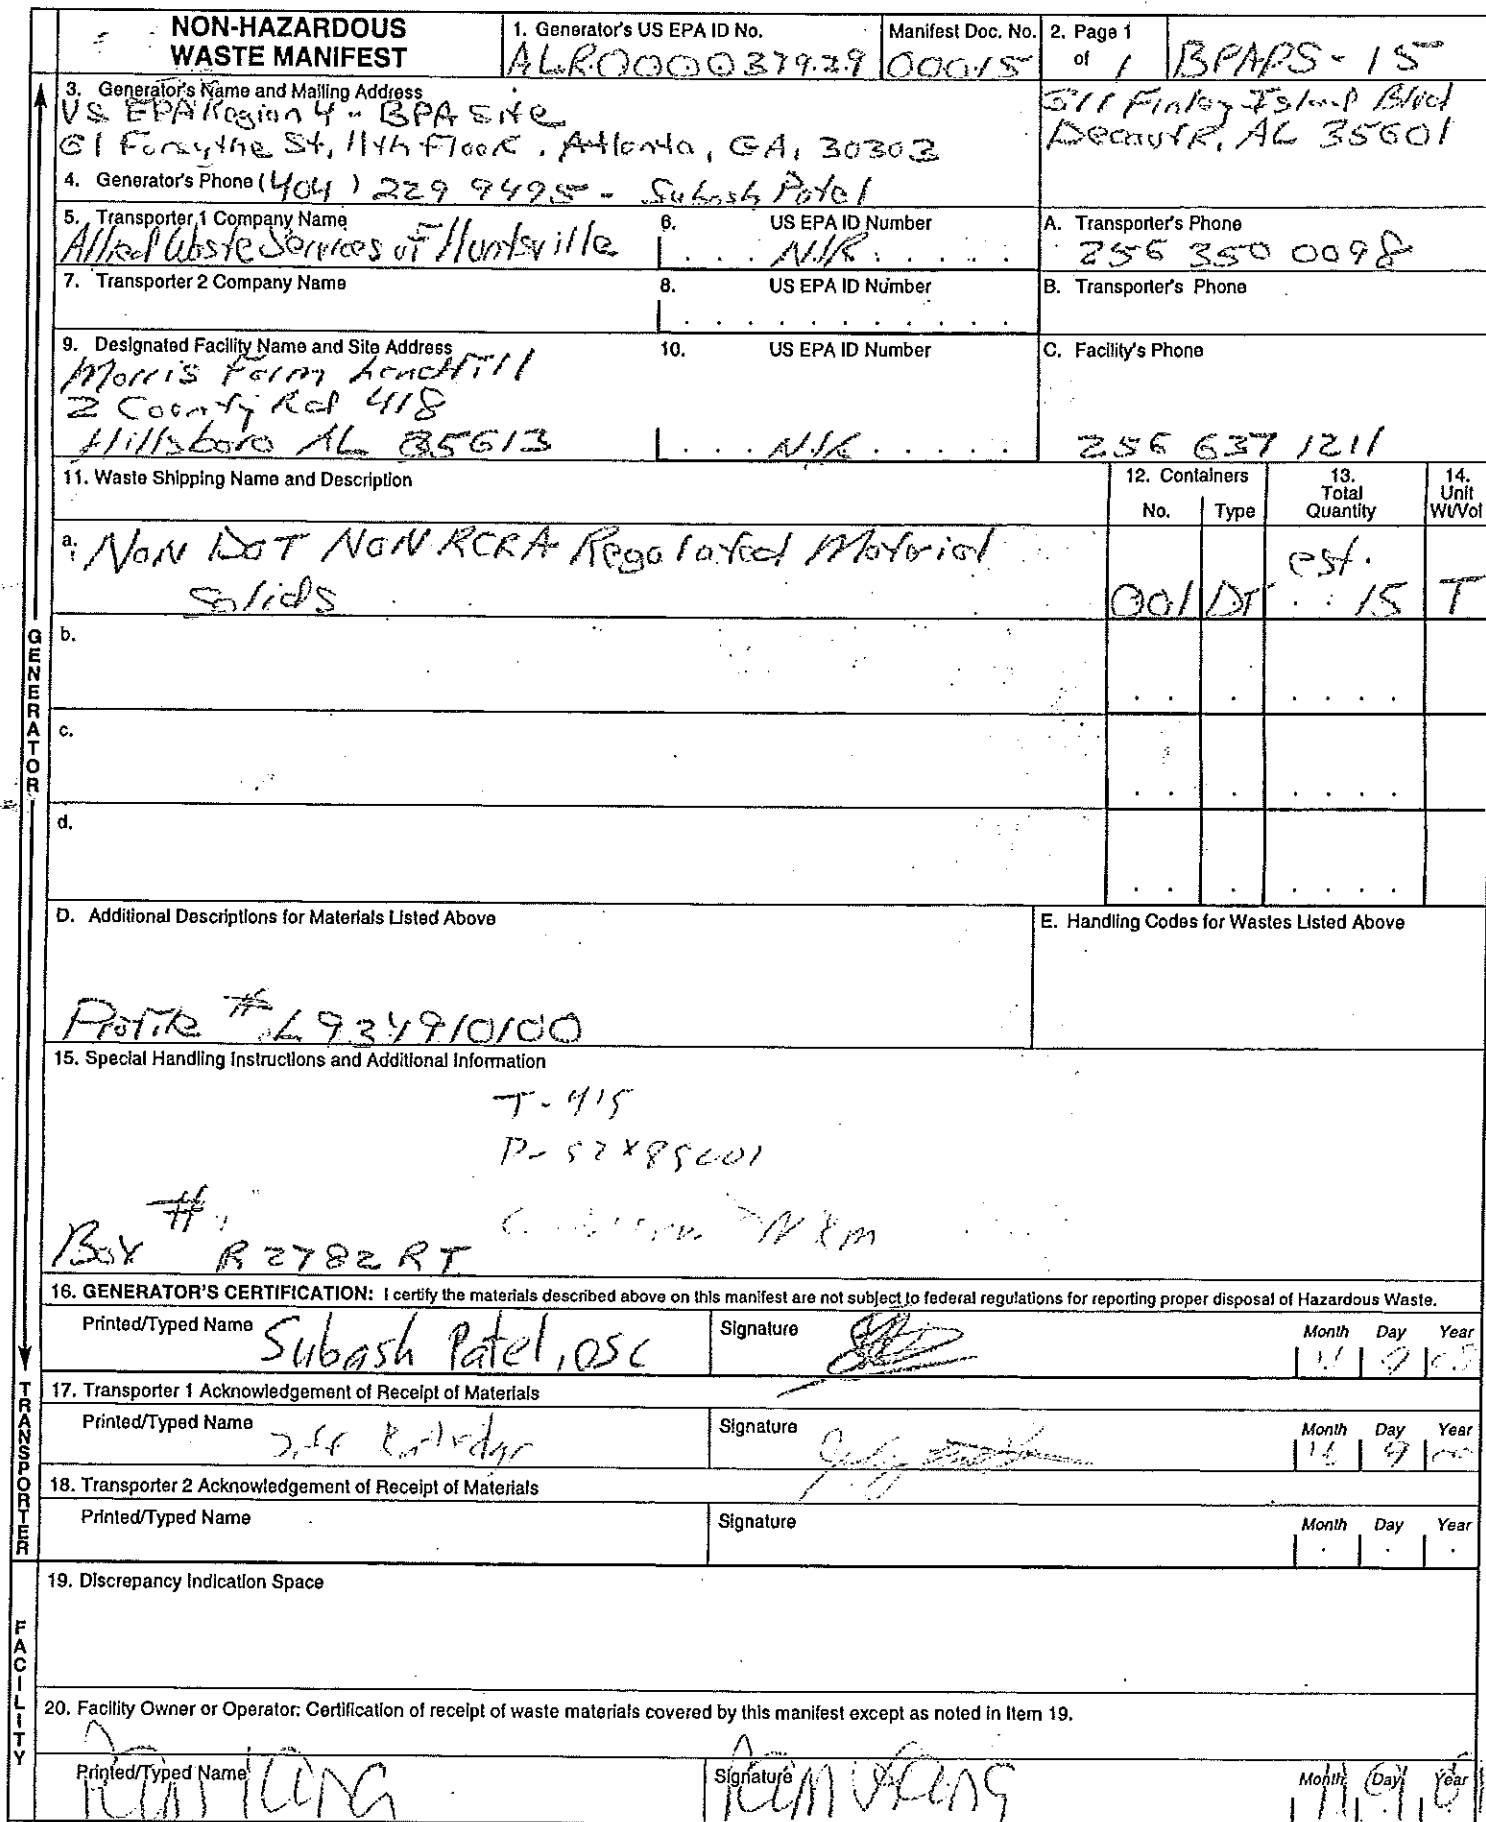 NON-HAZARDOUS
WASTE MANIFEST
1. Generator's US EPA ID No.
ALR000037929
Manifest Doc. No.
00015
2. Page 1
of 1
BPAPS-15
3. Generator's Name and Mailing Address
US EPA Region 4 - BPA Site
61 Forsythe St, 11th Floor, Atlanta, GA, 30303
511 Finley Island Blvd
Decautr, AL 35601
4. Generator's Phone (404) 229 9495 - Subash Patel
5. Transporter 1 Company Name
Allied Waste Services of Huntsville
6. US EPA ID Number
N/R
A. Transporter's Phone
256 350 0098
7. Transporter 2 Company Name
8. US EPA ID Number
B. Transporter's Phone
9. Designated Facility Name and Site Address
Morris Farm Landfill
2 County Rd 418
Hillsboro AL 35613
10. US EPA ID Number
N/R
C. Facility's Phone
256 637 1211
11. Waste Shipping Name and Description
12. Containers
No. Type
13. Total Quantity
14. Unit Wt/Vol
a. Non DOT Non RCRA Regulated Material
Solids
001 DT est. 15 T
b.
c.
d.
GENERATOR
D. Additional Descriptions for Materials Listed Above
Profile # L934910100
E. Handling Codes for Wastes Listed Above
15. Special Handling Instructions and Additional Information
T-415
Box # R2782RT
16. GENERATOR'S CERTIFICATION: I certify the materials described above on this manifest are not subject to federal regulations for reporting proper disposal of Hazardous Waste.
Printed/Typed Name Subash Patel, OSC
Signature
Month Day Year
11 9
TRANSPORTER
17. Transporter 1 Acknowledgement of Receipt of Materials
Printed/Typed Name
Signature
Month Day Year
11 9
18. Transporter 2 Acknowledgement of Receipt of Materials
Printed/Typed Name
Signature
Month Day Year
FACILITY
19. Discrepancy Indication Space
20. Facility Owner or Operator: Certification of receipt of waste materials covered by this manifest except as noted in Item 19.
Printed/Typed Name
Signature
Month Day Year